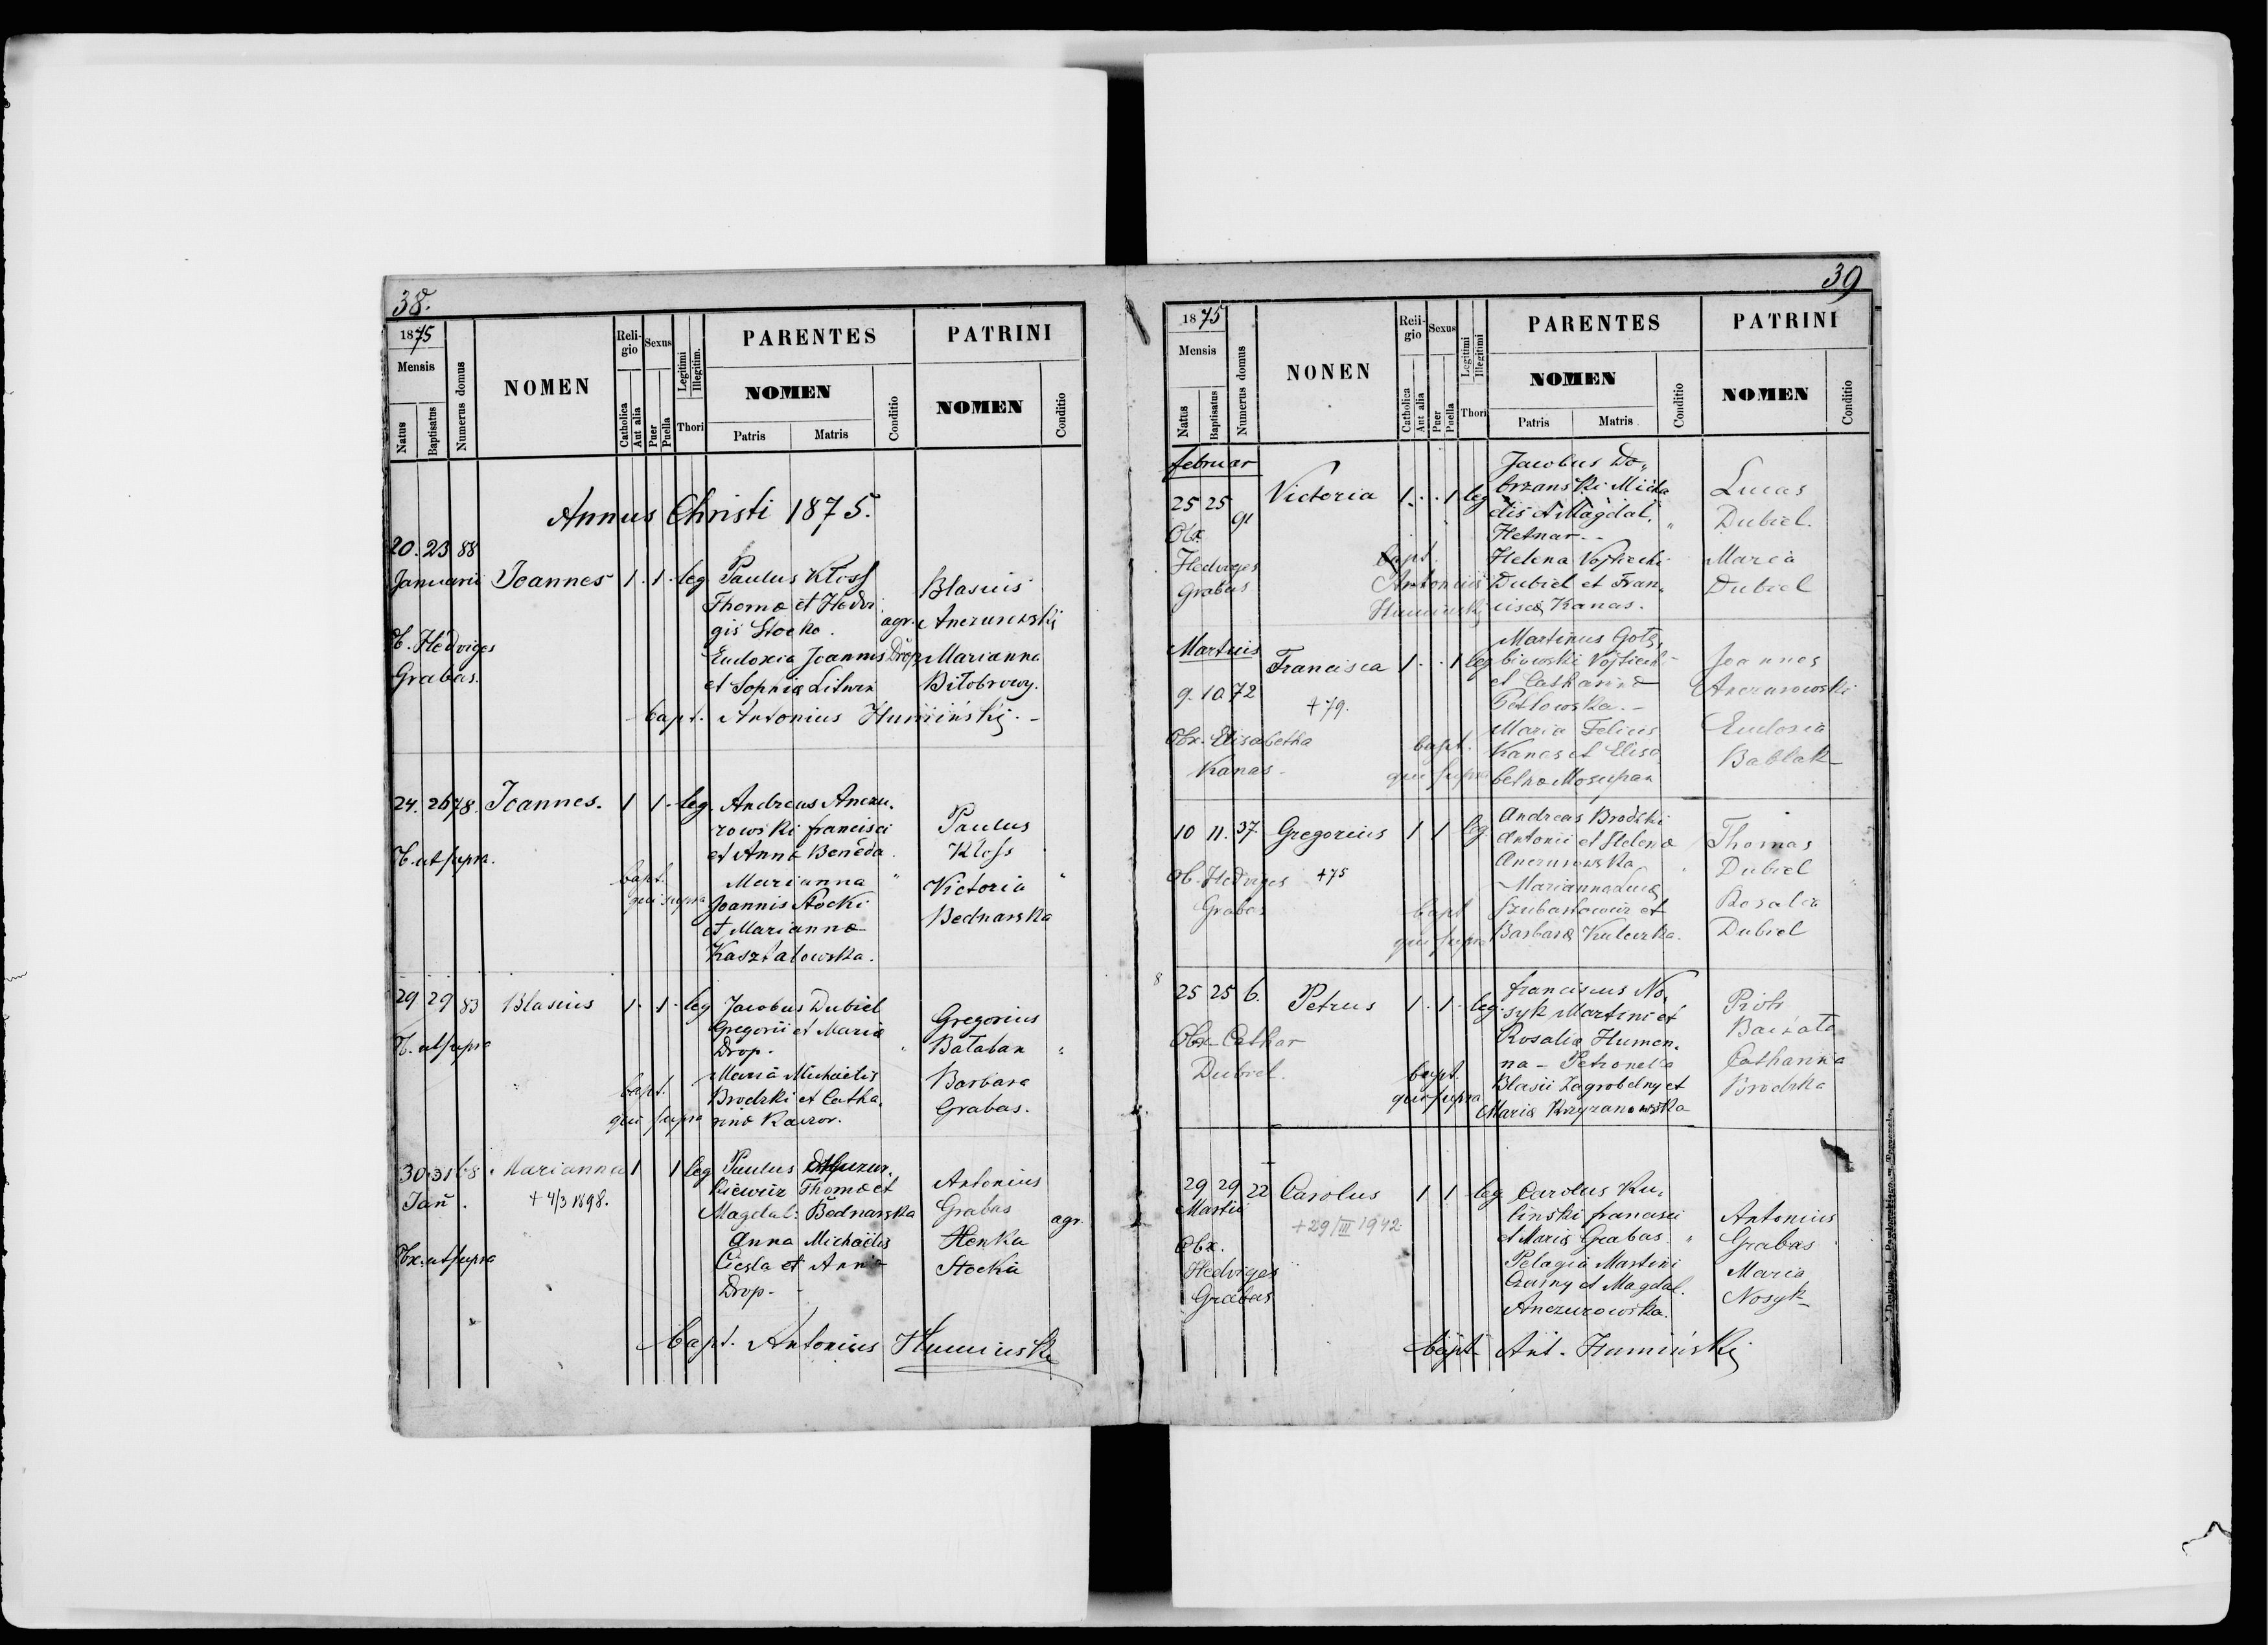 38.
1875
Mensis
Natus
Baptisatus
Numerus domus
NOMEN
Religio
Catholica
Aut alia
Sexus
Puer
Puella
Legitimi
Illegitim.
Thori
PARENTES
NOMEN
Patris
Matris
Conditio
PATRINI
NOMEN
Conditio
Annus Christi 1875.
20. 23 88
Januarii Joannes 1. 1. leg
Paulus Kloss
Thomæ et Hedvi
gis Stocka. agr.
Eudoxia Joannis Drop
et Sophiæ Litwin
Blasius
Anczurowski
Marianna
Bitobrowy.
O. Hedviges
Grabas.
bapt. Antonius Humiński. -
24. 26 78. Joannes. 1 1. leg.
Andreas Anczu,
rowski francisci
et Annæ Beneda
Marianna "
Joannis Stocki
et Mariannæ
Kasztalowska.
Paulus
Kloss
Victoria
Bednarska
O. ut supra.
bapt.
qui supra
29 29 83 Blasius 1. 1. leg
Jacobus Dubiel
Gregorii et Mariæ
Drop.
Maria Michaelis
Brodzki et Catha,
rinæ Kaczor.
Gregorius
Bataban
Barbara
Grabas.
O. ut supra
bapt.
qui supra
30 31 68. Marianna 1 1 leg
Jan. + 4/3 1898.
Paulus
kiewicz Thomæ et
Magdal: Bednarska
Anna Michaelis
Ciesla et Annæ
Drop.
Antonius
Grabas agr.
Henka
Stocka
Obx. ut supra
bapt. Antonius Humiński
39
1875
Mensis
Natus
Baptisatus
Numerus domus
NONEN
Reiigio
Catholica
Aut alia
Sexus
Puer
Puella
Legitimi
Illegitimi
Thori
PARENTES
NOMEN
Patris
Matris
Conditio
PATRINI
NOMEN
Conditio
februar
25 25 91 Victoria 1. . 1 leg
Jacobus Do,
brzanski Micha
elis et Magdal.
Hetnar. -
Helena Vojtiechi
Dubiel et Fran,
ciscæ Kanas.
Lucas
Dubiel.
Maria
Dubiel
Obx.
Hedviges
Grabas
bapt.
Antonius
Humiński
Martius
9. 10 72 Francisca 1. . 1 leg
+ 79.
Martinus Gołę,
biowski Vojtiech
et Catharinæ
Petlowska. -
Maria Felicis
Kanas et Elisa
bethæ Moszupan
Joannes
Anczurowski
Eudoxia
Bablak
Obx. Elisabetha
Kanas.
bapt.
qui supra
10 11. 37. Gregorius 1 1 leg.
Andreas Brodzki
Antonii et Helenæ
Anczurowska
Marianna Lucæ
Szubartowicz et
Barbaræ Kulczka.
Thomas
Dubiel
Rosalia
Dubiel
Ob. Hedviges +75
Grabas
bapt
qui supra
25 25 6. Petrus 1. 1. leg.
franciscus No,
syk Martini et
Rosaliæ Humen,
na - Petronella
Blasii Zagrobelny et
Mariæ Krzyzanowska
Piotr
Catharina
Brodzka
Obx. Cathar
Dubiel.
bapt.
qui supra
29 29 22 Carolus 1 1 leg
Martii
+ 29/III 1942.
Carolus Ku,
linski francisci
et Mariæ Grabas. "
Pelagia Martini
Czarny et Magdal.
Anczurowska.
Antonius
Grabas
Maria
Nosyk
Obx.
Hedviges
Grabas
bapt. Ant. Humiński